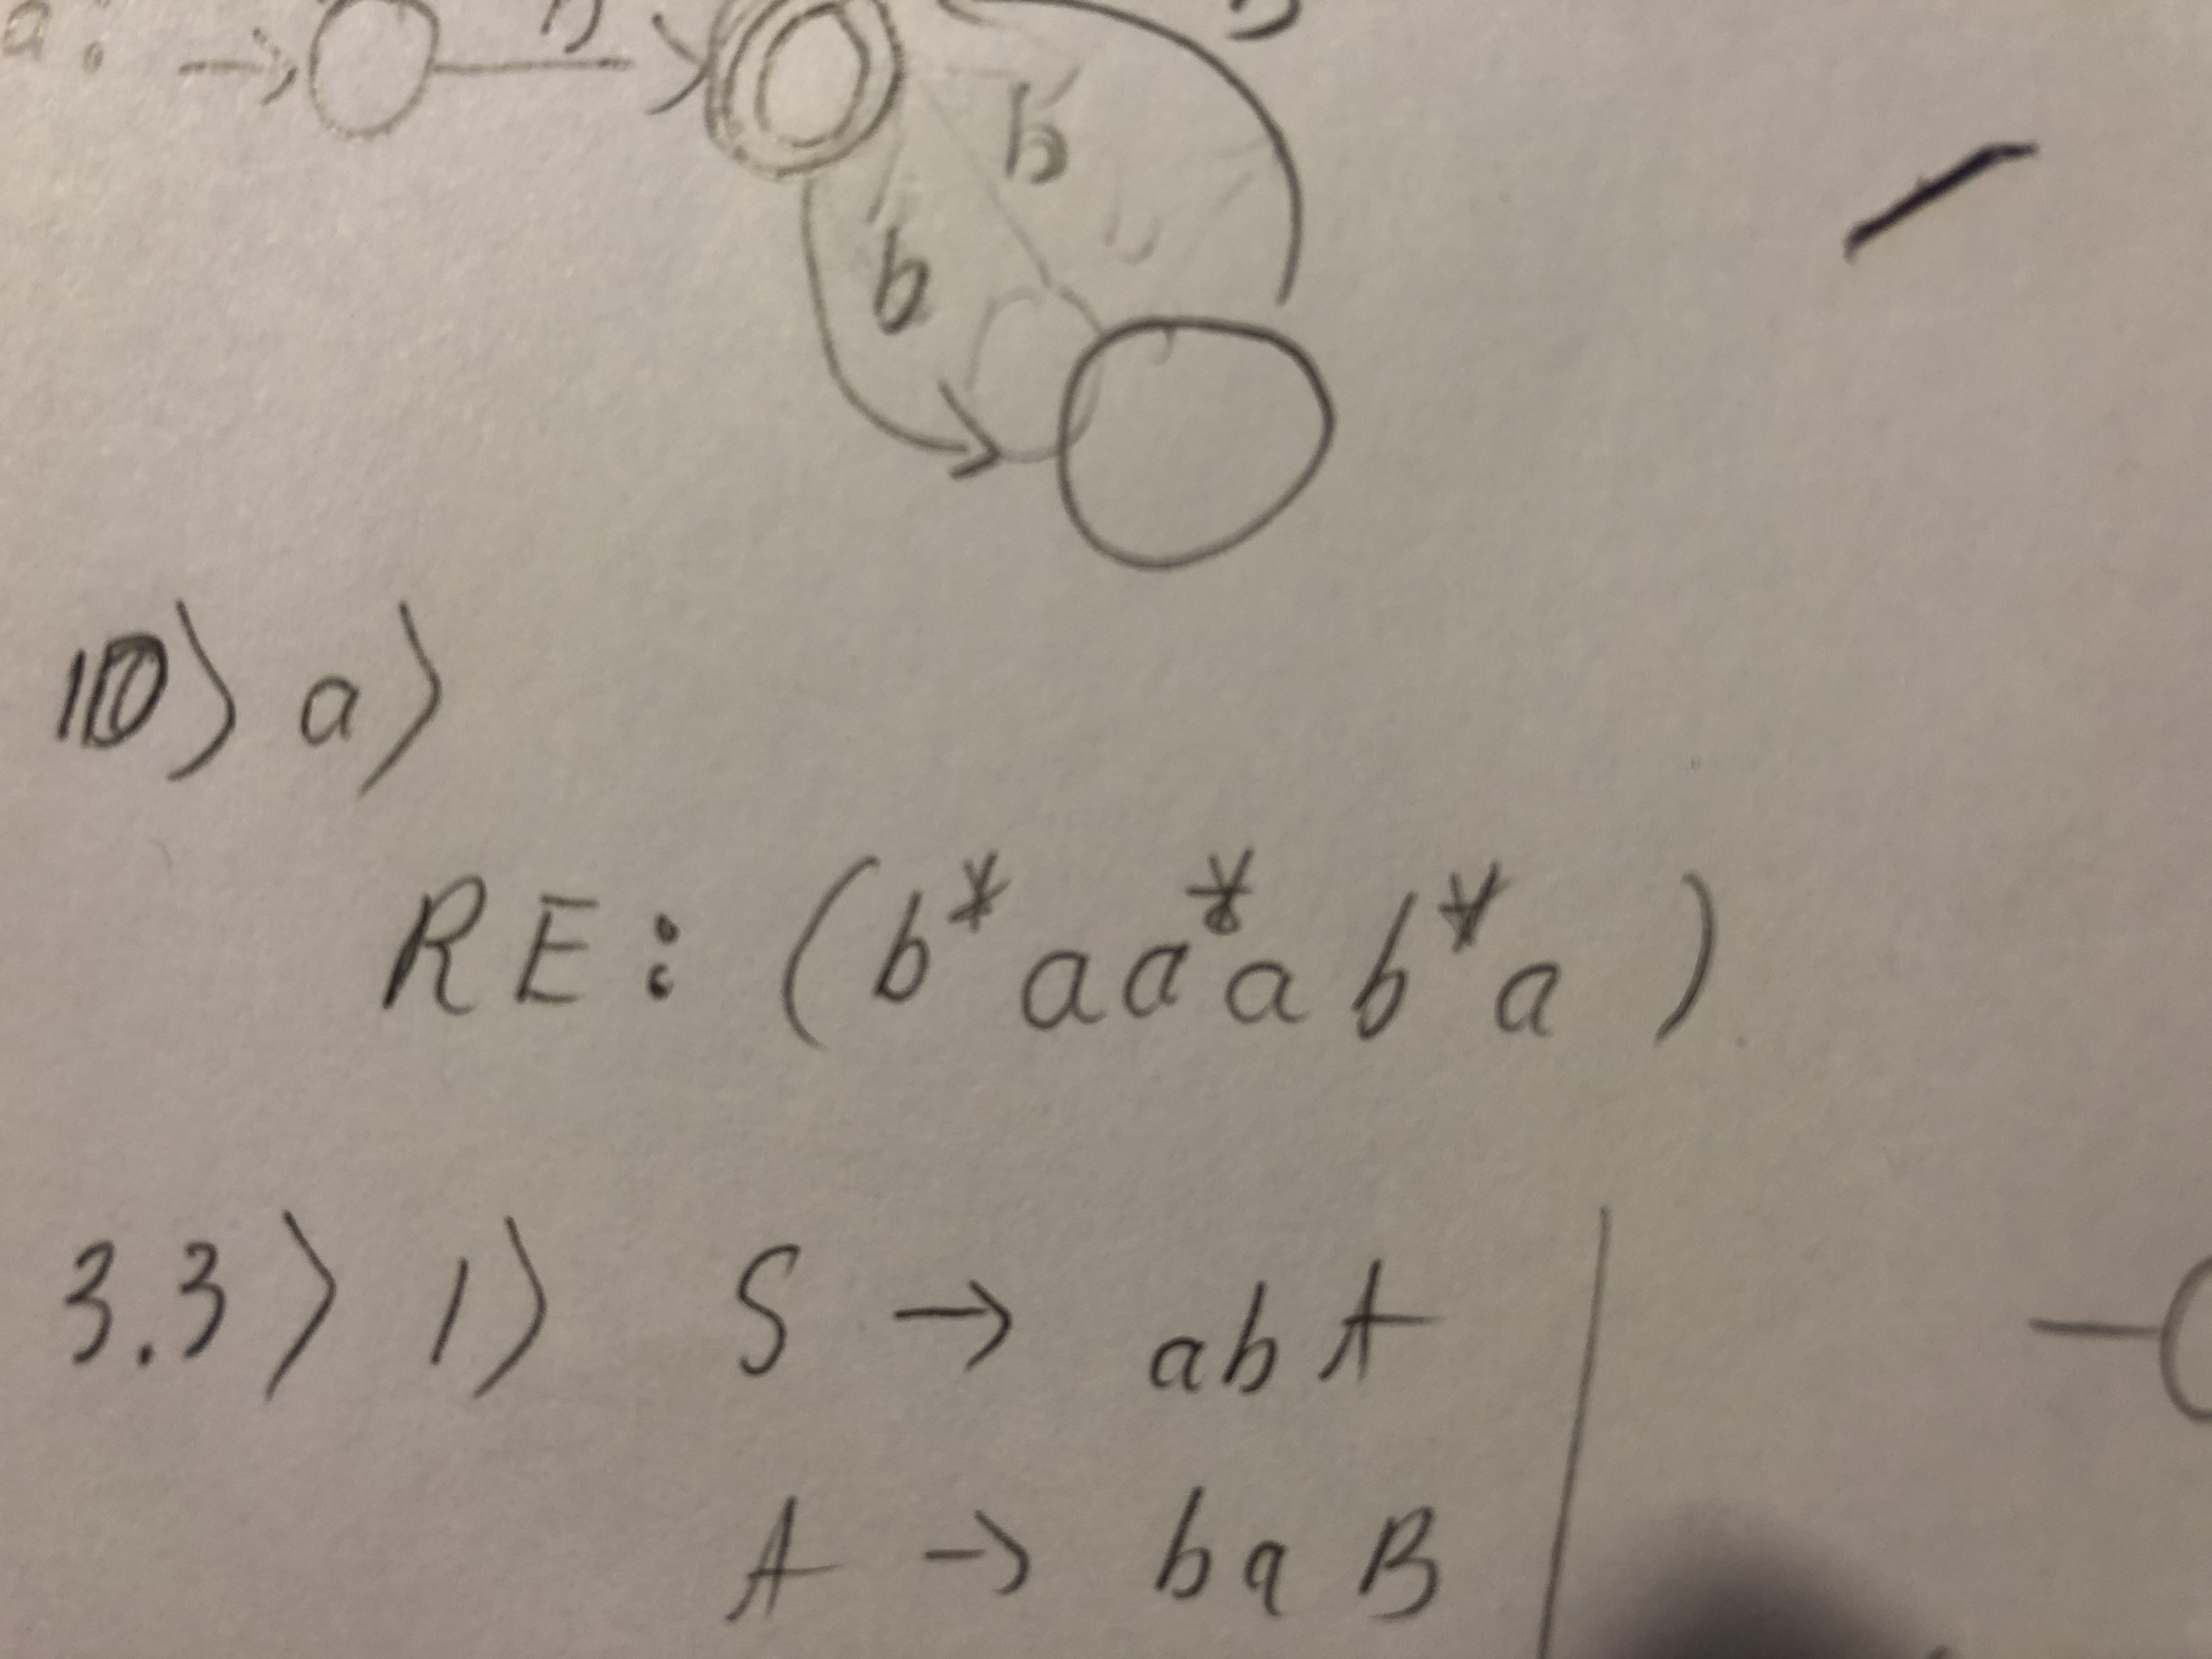 a:
b
b
10) a)
RE: (b* a a* a b* a)
3.3) 1) S → abA
A → baB